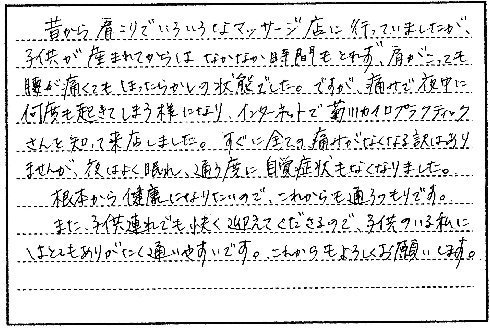 昔から肩こりでいろいろなマッサージ店に行っていましたが、
子供が産まれてからは なかなか時間もとれず、肩がこっても
腰が痛くてもほったらかしの状態でした。ですが、痛みで夜中に
何度も起きてしまう様になり、インターネットで菊川カイロプラクティック
さんを知って来店しました。すぐに全ての痛みがなくなる訳はあり
ませんが、夜はよく眠れ、通う度に自覚症状もなくなりました。
根本から健康になりたいので、これからも通うつもりです。
また、子供連れでも快く迎えてくださるので、子供のいる私に
はとてもありがたく通いやすいです。これからもよろしくお願いします。